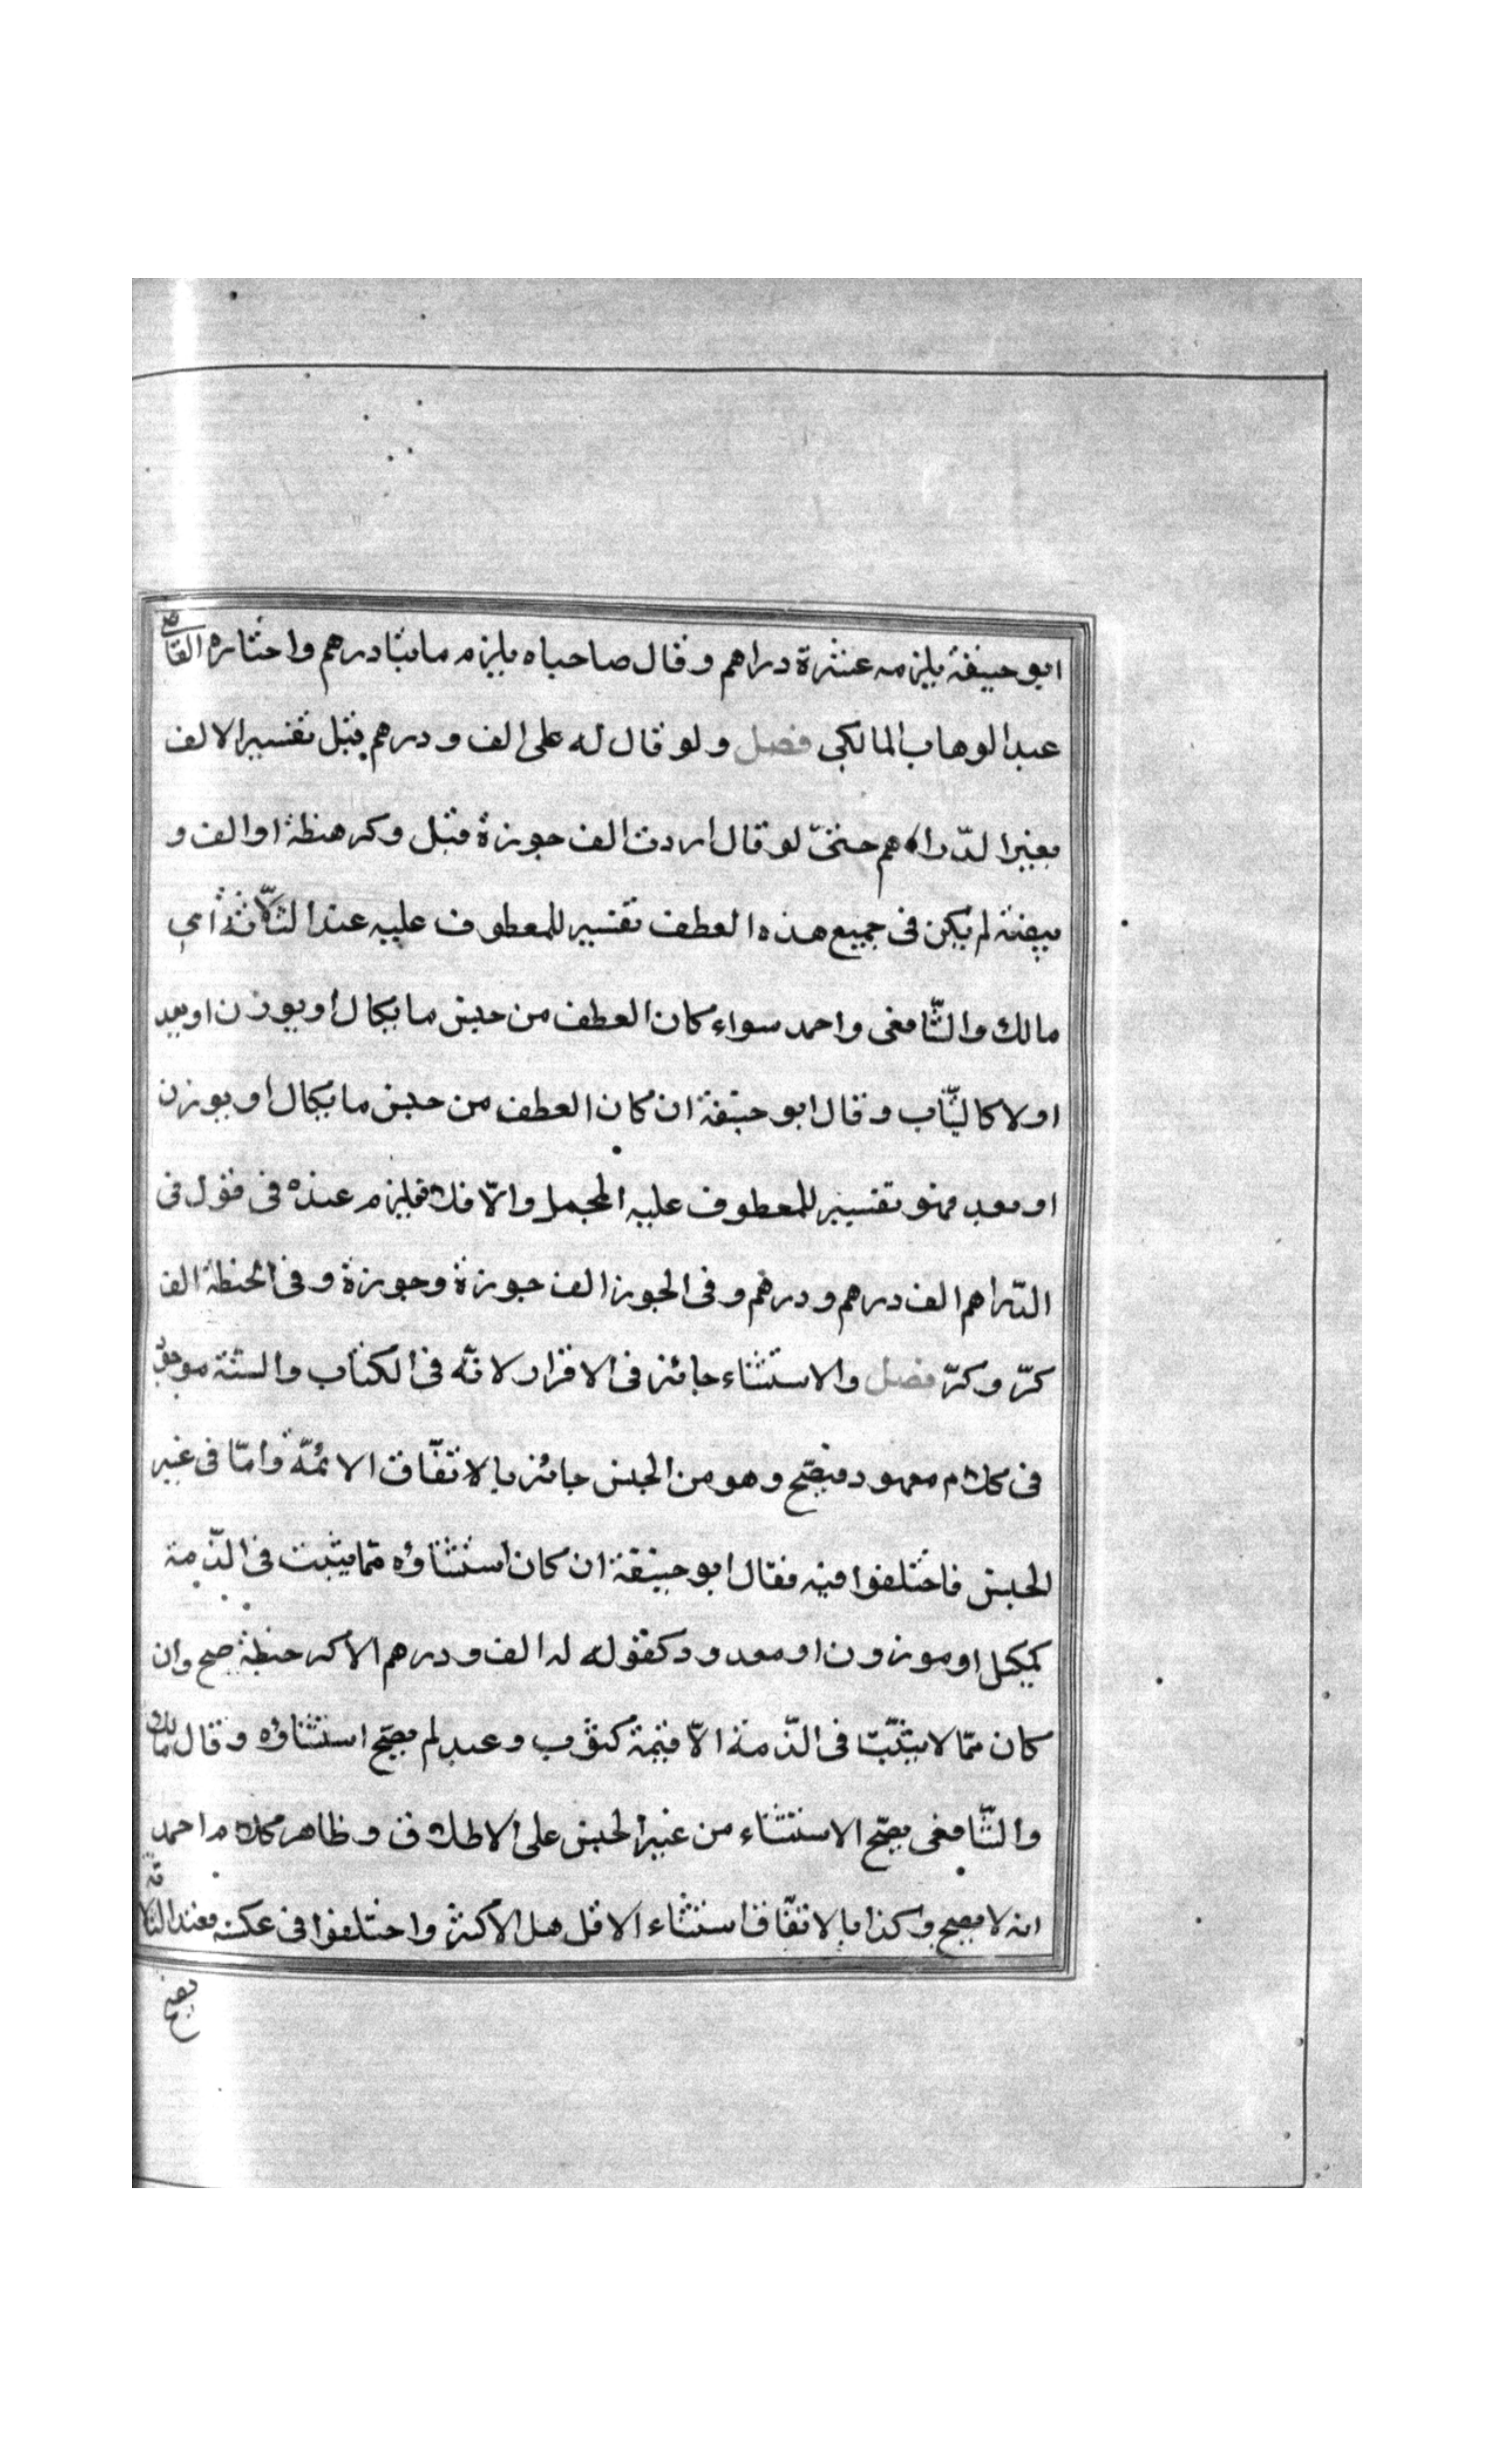 ابو حنيفة يلزمه عشرة دراهم وقال صاحباه يلزمه مايتا درهم واختاره القاضى
عبد الوهاب المالكى فصل ولو قال له على الف ودرهم قبل تفسير الالف
بغير الدّراهم حتىّ لو قال اردت الف جوزة قبل وكر هنطة او الف و
بيضة لم يكن فى جميع هذه العطف تفسير للمعطوف عليه عند الثلّاثة اى
مالك والشّافعى واحمد سواء كان العطف من جنس ما يكال او يوزن او يعد
اولا كالثّياب وقال ابو حنيفة ان كان العطف من جنس ما يكال او يوزن
او يعد فهو تفسير للمعطوف عليه المجمل والّا فلا فيلزم عنده فى قول فى
الدّراهم الف درهم ودرهم وفى الجوز الف جوزة وجوزة وفى الحنطة الف
كرّ وكرّ فصل والاستثناء جائز فى الاقرار لانّه فى الكتاب والسّنّة موجود
فى كلام معهود فيصّح وهو من الجنس جائز بالاتّفاق الائمّة وامّا فى غير
الجنس فاختلفوا فيه فقال ابو حنيفة ان كان استثناؤه ممّا يثبت فى الذّمة
كمكيل او موزون او معدود كقوله له الف ودرهم الا كر حنطة صح وان
كان ممّا لا يثبت فى الذّمة الّا قيمة كثوب وعبد لم يصّح استثناؤه وقال مالك
والشّافعى يصّح الاستثناء من غير الجنس على الاطلاق وظاهر كلام احمد
انه لا يصح وكذا بالاتّفاق استثناء الاقل هل الاكثر واختلفوا فى عكسه فعند الثلاثة
يصح